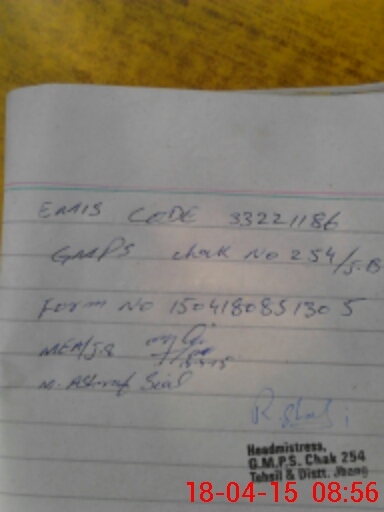 EMIS CODE 33221186
GMPS chak No 254/J.B
Form No 150418085130 5
MEA/J.B
M. Ashraf Sial
Headmistress,
G.M.P.S. Chak 254
Tehsil & Distt. Jhang
18-04-15 08:56